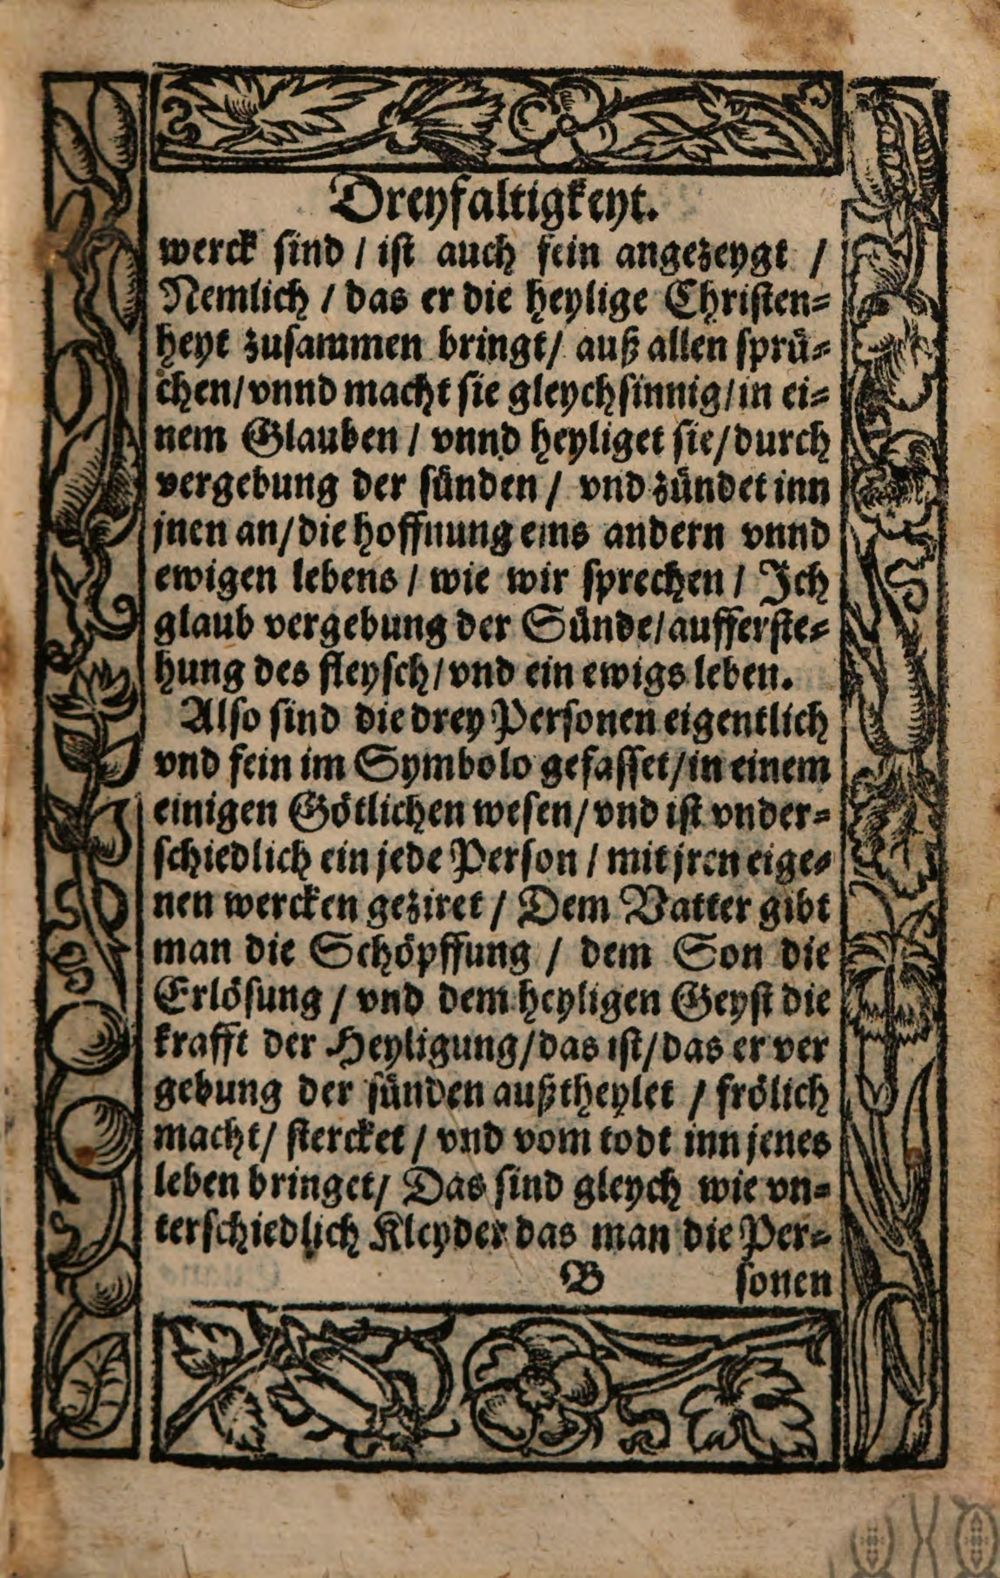 Dreyfaltigkeyt.
werck sind / ist auch fein angezeygt /
Nemlich / das er die heylige Christen=
heyt zusammen bringt/ auß allen sprü=
chen/vnnd macht sie gleychsinnig/in ei=
nem Glauben / vnnd heyliget sie/durch
vergebung der sünden / vnd zündet inn
jnen an/die hoffnung eins andern vnnd
ewigen lebens / wie wir sprechen / Jch
glaub vergebung der Sünde/aufferste=
hung des fleysch/vnd ein ewigs leben.
Also sind die drey Personen eigentlich
vnd fein im Symbolo gefasset/in einem
einigen Götlichen wesen/vnd ist vnder=
schiedlich ein jede Person / mit jren eige=
nen wercken geziret / Dem Vatter gibt
man die Schöpffung / dem Son die
Erlösung / vnd dem heyligen Geyst die
krafft der Heyligung/das ist/das er ver
gebung der sünden außtheylet / frölich
macht/ stercket / vnd vom todt inn jenes
leben bringet/ Das sind gleych wie vn=
terschiedlich Kleyder das man die Per=
B sonen